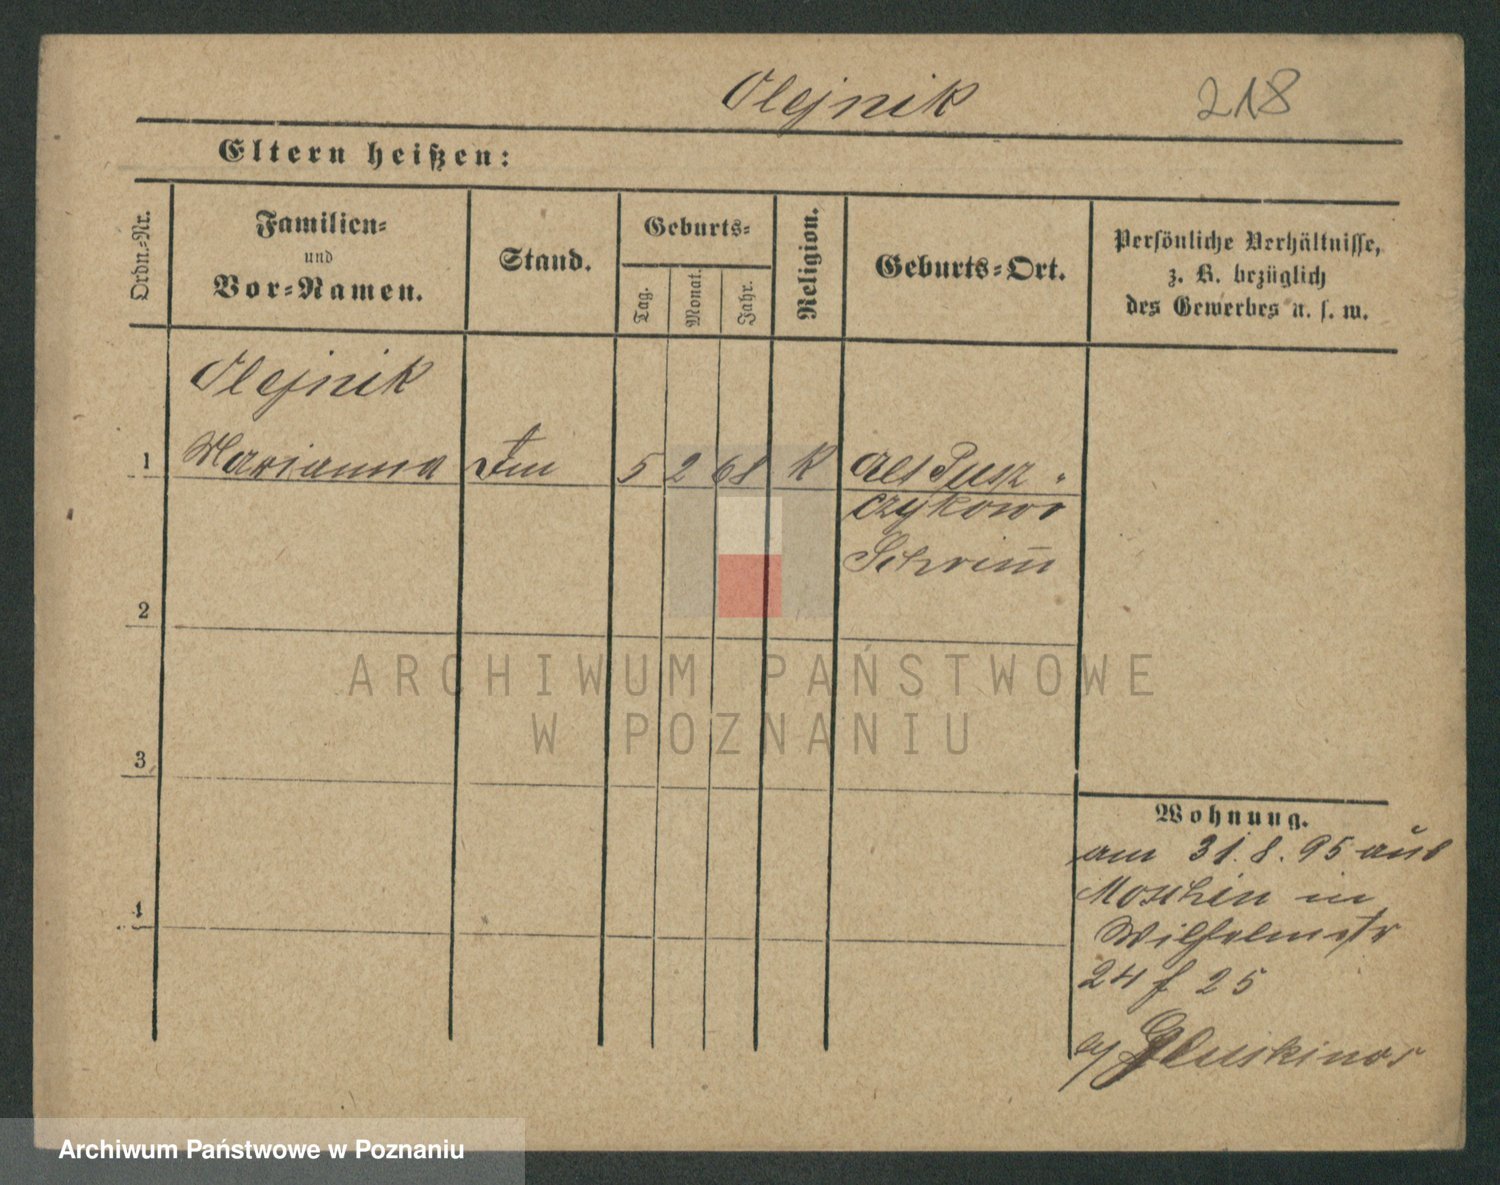 Olejnik 218
Eltern heißen:
Ordn.-Nr.
Familien-
und
Vor-Namen.
Stand.
Geburts-
Tag.
Monat.
Jahr.
Religion.
Geburts-Ort.
Persönliche Verhältnisse,
z. B. bezüglich
des Gewerbes u. s. w.
Olejnik
1 Marianna 5 2 68 K Alt Pusz
czykowo
Schrim̅
2
3
4
Wohnung.
am 31. 8. 95 aus
Moschin in
Wilhelmstr
24 f 25
ARCHIWUM PAŃSTWOWE
W POZNANIU
Archiwum Państwowe w Poznaniu